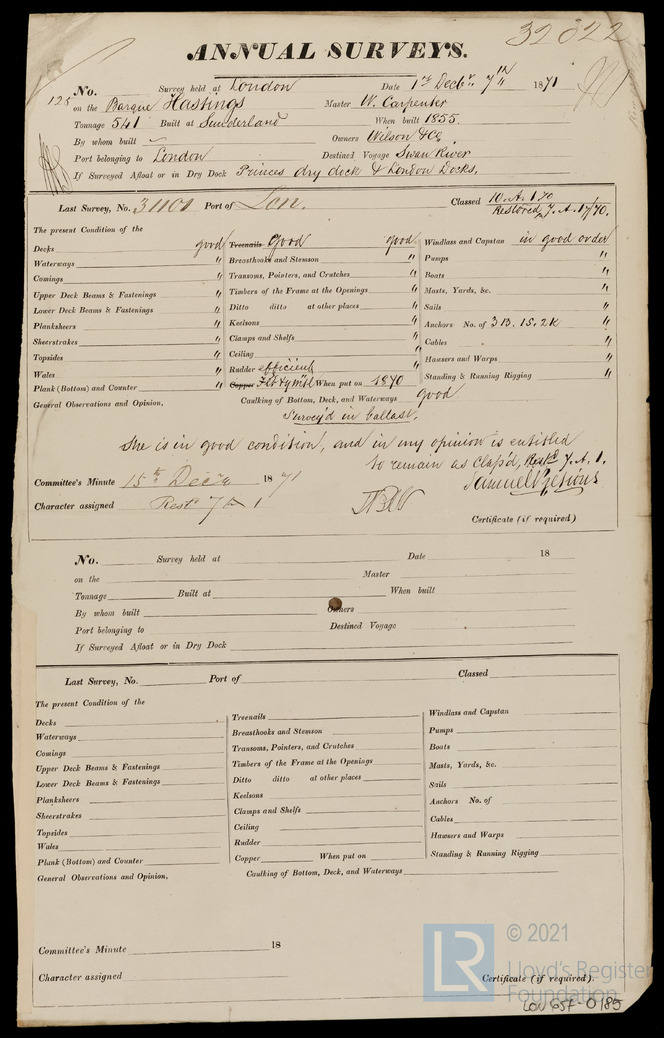 32822
ANNUAL SURVEYS.
No. Survey held at London Date 1st Decbr. 7th 1871
125 on the Barque Hastings Master W. Carpenter
Tonnage 541 Built at Sunderland When built 1855.
By whom built Owners Wilson & Co
Port belonging to London Destined Voyage Swan River
If Surveyed Afloat or in Dry Dock Princes dry dock & London Docks.
Last Survey, No. 31101 Port of Lon. Classed 10. A. 1 70
Restored 7. A. 1 7/70.
The present Condition of the
Decks good
Waterways "
Comings "
Upper Deck Beams & Fastenings "
Lower Deck Beams & Fastenings "
Planksheers "
Sheerstrakes "
Topsides "
Wales "
Plank (Bottom) and Counter "
General Observations and Opinion,
Treenails good good
Breasthooks and Stemson "
Transoms, Pointers, and Crutches "
Timbers of the Frame at the Openings "
Ditto ditto at other places "
Keelsons "
Clamps and Shelfs "
Ceiling "
Rudder efficient
Copper When put on 1870
Caulking of Bottom, Deck, and Waterways good
Windlass and Capstan in good order
Pumps "
Boats "
Masts, Yards, &c. "
Sails "
Anchors No. of 3B. 1S. 2K "
Cables "
Hawsers and Warps "
Standing & Running Rigging "
Survey'd in ballast.
She is in good condition, and in my opinion is entitled
to remain as class'd, Rest'd 7. A. 1.
Committee's Minute 15th Decr 1871
Character assigned Rest 7 A 1
Samuel
Certificate (if required)
No. Survey held at Date 18
on the Master
Tonnage Built at When built
By whom built Owners
Port belonging to Destined Voyage
If Surveyed Afloat or in Dry Dock
Last Survey, No. Port of Classed
The present Condition of the
Decks
Waterways
Comings
Upper Deck Beams & Fastenings
Lower Deck Beams & Fastenings
Planksheers
Sheerstrakes
Topsides
Wales
Plank (Bottom) and Counter
General Observations and Opinion,
Treenails
Breasthooks and Stemson
Transoms, Pointers, and Crutches
Timbers of the Frame at the Openings
Ditto ditto at other places
Keelsons
Clamps and Shelfs
Ceiling
Rudder
Copper When put on
Caulking of Bottom, Deck, and Waterways
Windlass and Capstan
Pumps
Boats
Masts, Yards, &c.
Sails
Anchors No. of
Cables
Hawsers and Warps
Standing & Running Rigging
Committee's Minute 18
Character assigned
Certificate (if required).
LR © 2021
Lloyd's Register
Foundation
LON 657-0185